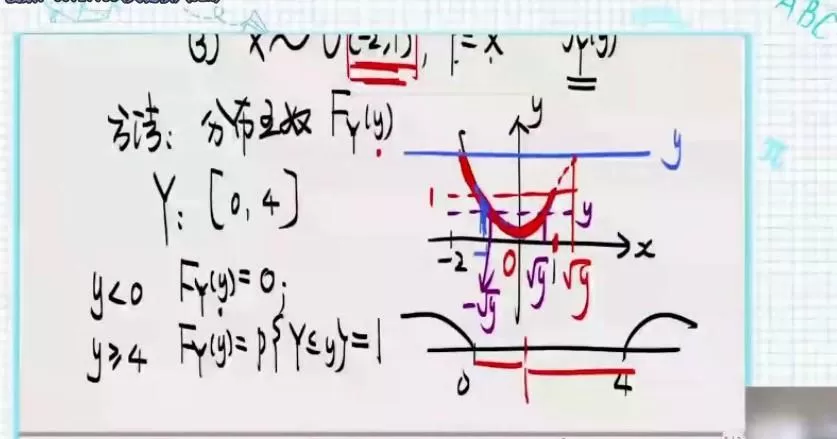 (3) X~U(-2,1), Y=X² f_Y(y)
方法: 分布函数 F_Y(y)
Y: [0,4]
y<0 F_Y(y)=0;
y≥4 F_Y(y)=P{Y≤y}=1
y
y
1
y
-2
0
1
x
-√y
√y
√y
0
1
4
ABC
π